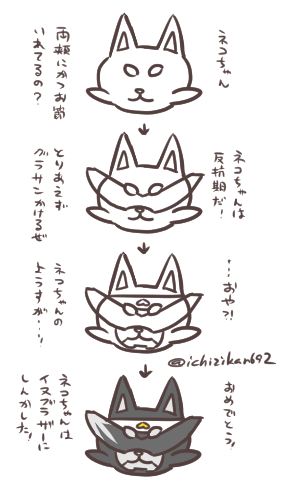 ネコちゃん
両頬にかつお節
いれてるの？
ネコちゃんは
反抗期だ！
とりあえず
グラサンかけるぜ
…おや?!
ネコちゃんの
ようすが…！
@ichizikan692
おめでとう！
ネコちゃんは
イヌブラザーに
しんかした！